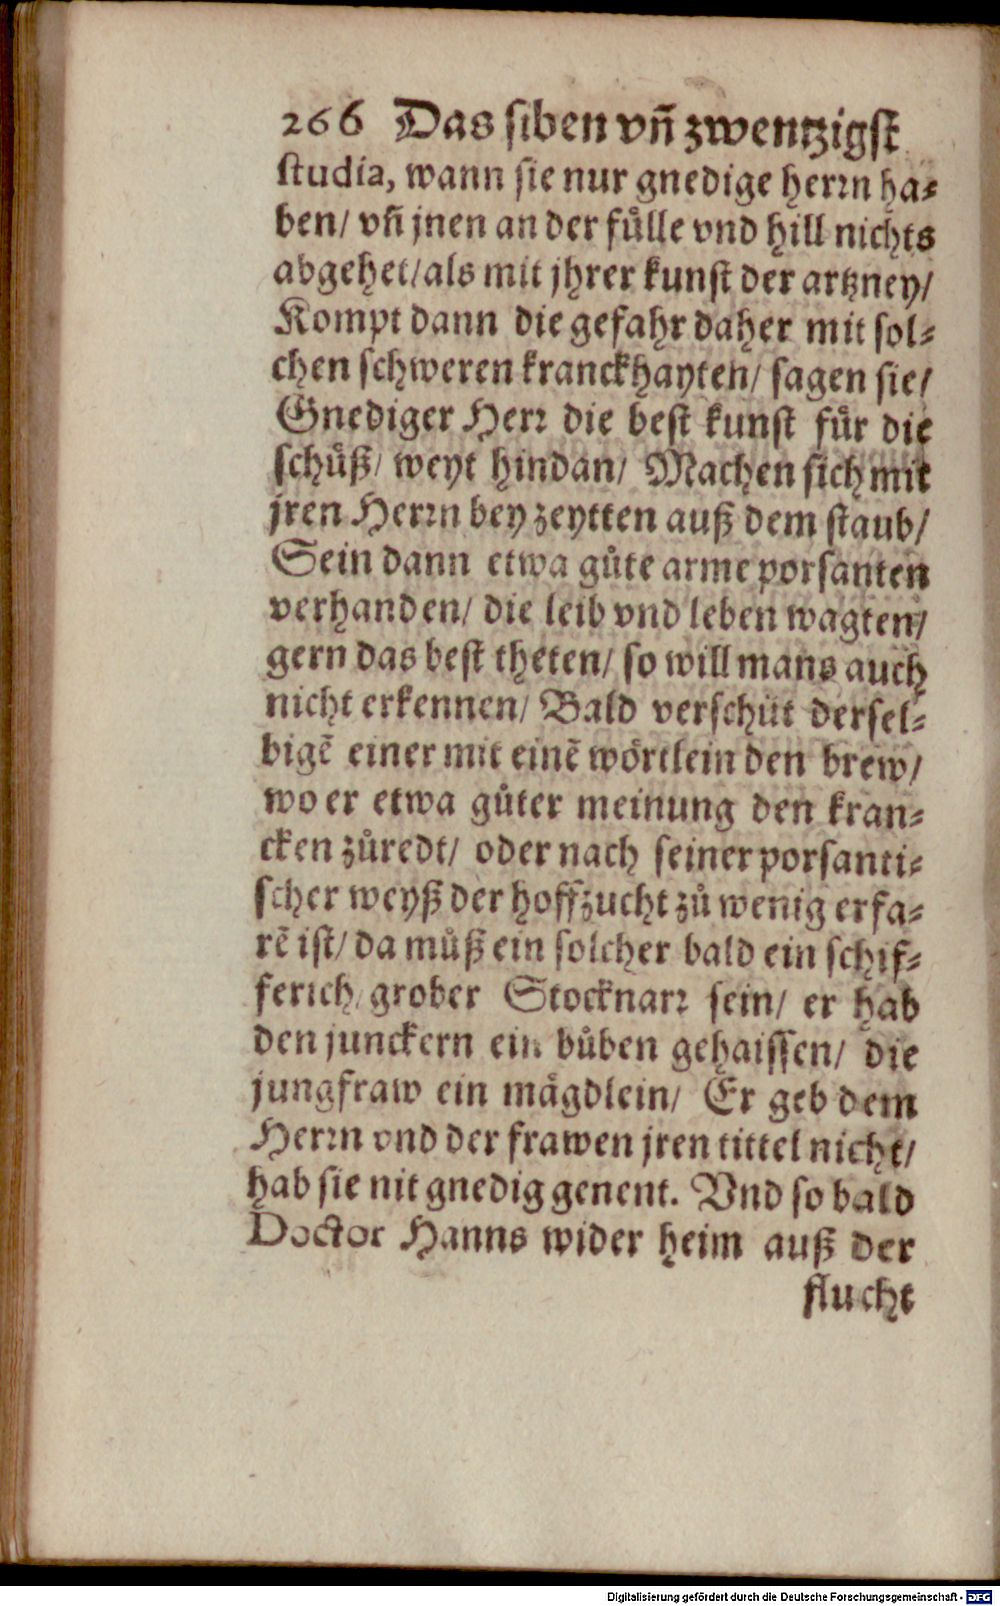 266 Das siben vñ zwentzigst
studia, wann sie nur gnedige herrn ha-
ben/ vñ jnen an der fuͤlle vnd hill nichts
abgehet/ als mit jhrer kunst der artzney/
Kompt dann die gefahr daher mit sol-
chen schweren kranckhayten/ sagen sie/
Gnediger Herr die best kunst fuͤr die
schuͤß/ weyt hindan/ Machen sich mit
jren Herrn bey zeytten auß dem staub/
Sein dann etwa guͦte arme porsanten
verhanden/ die leib vnd leben wagten/
gern das best theten/ so will mans auch
nicht erkennen/ Bald verschüt dersel-
bigē einer mit einē woͤrtlein den brew/
wo er etwa guͦter meinung den kran-
cken zuͦredt/ oder nach seiner porsanti-
scher weyß der hoffzucht zuͦ wenig erfa-
rē ist/ da muͦß ein solcher bald ein schif-
ferich grober Stocknarr sein/ er hab
den junckern ein buͦben gehaissen/ die
jungfraw ein maͤgdlein/ Er geb dem
Herrn vnd der frawen jren tittel nicht/
hab sie nit gnedig genent. Vnd so bald
Doctor Hanns wider heim auß der
flucht
Digitalisierung gefördert durch die Deutsche Forschungsgemeinschaft - DFG